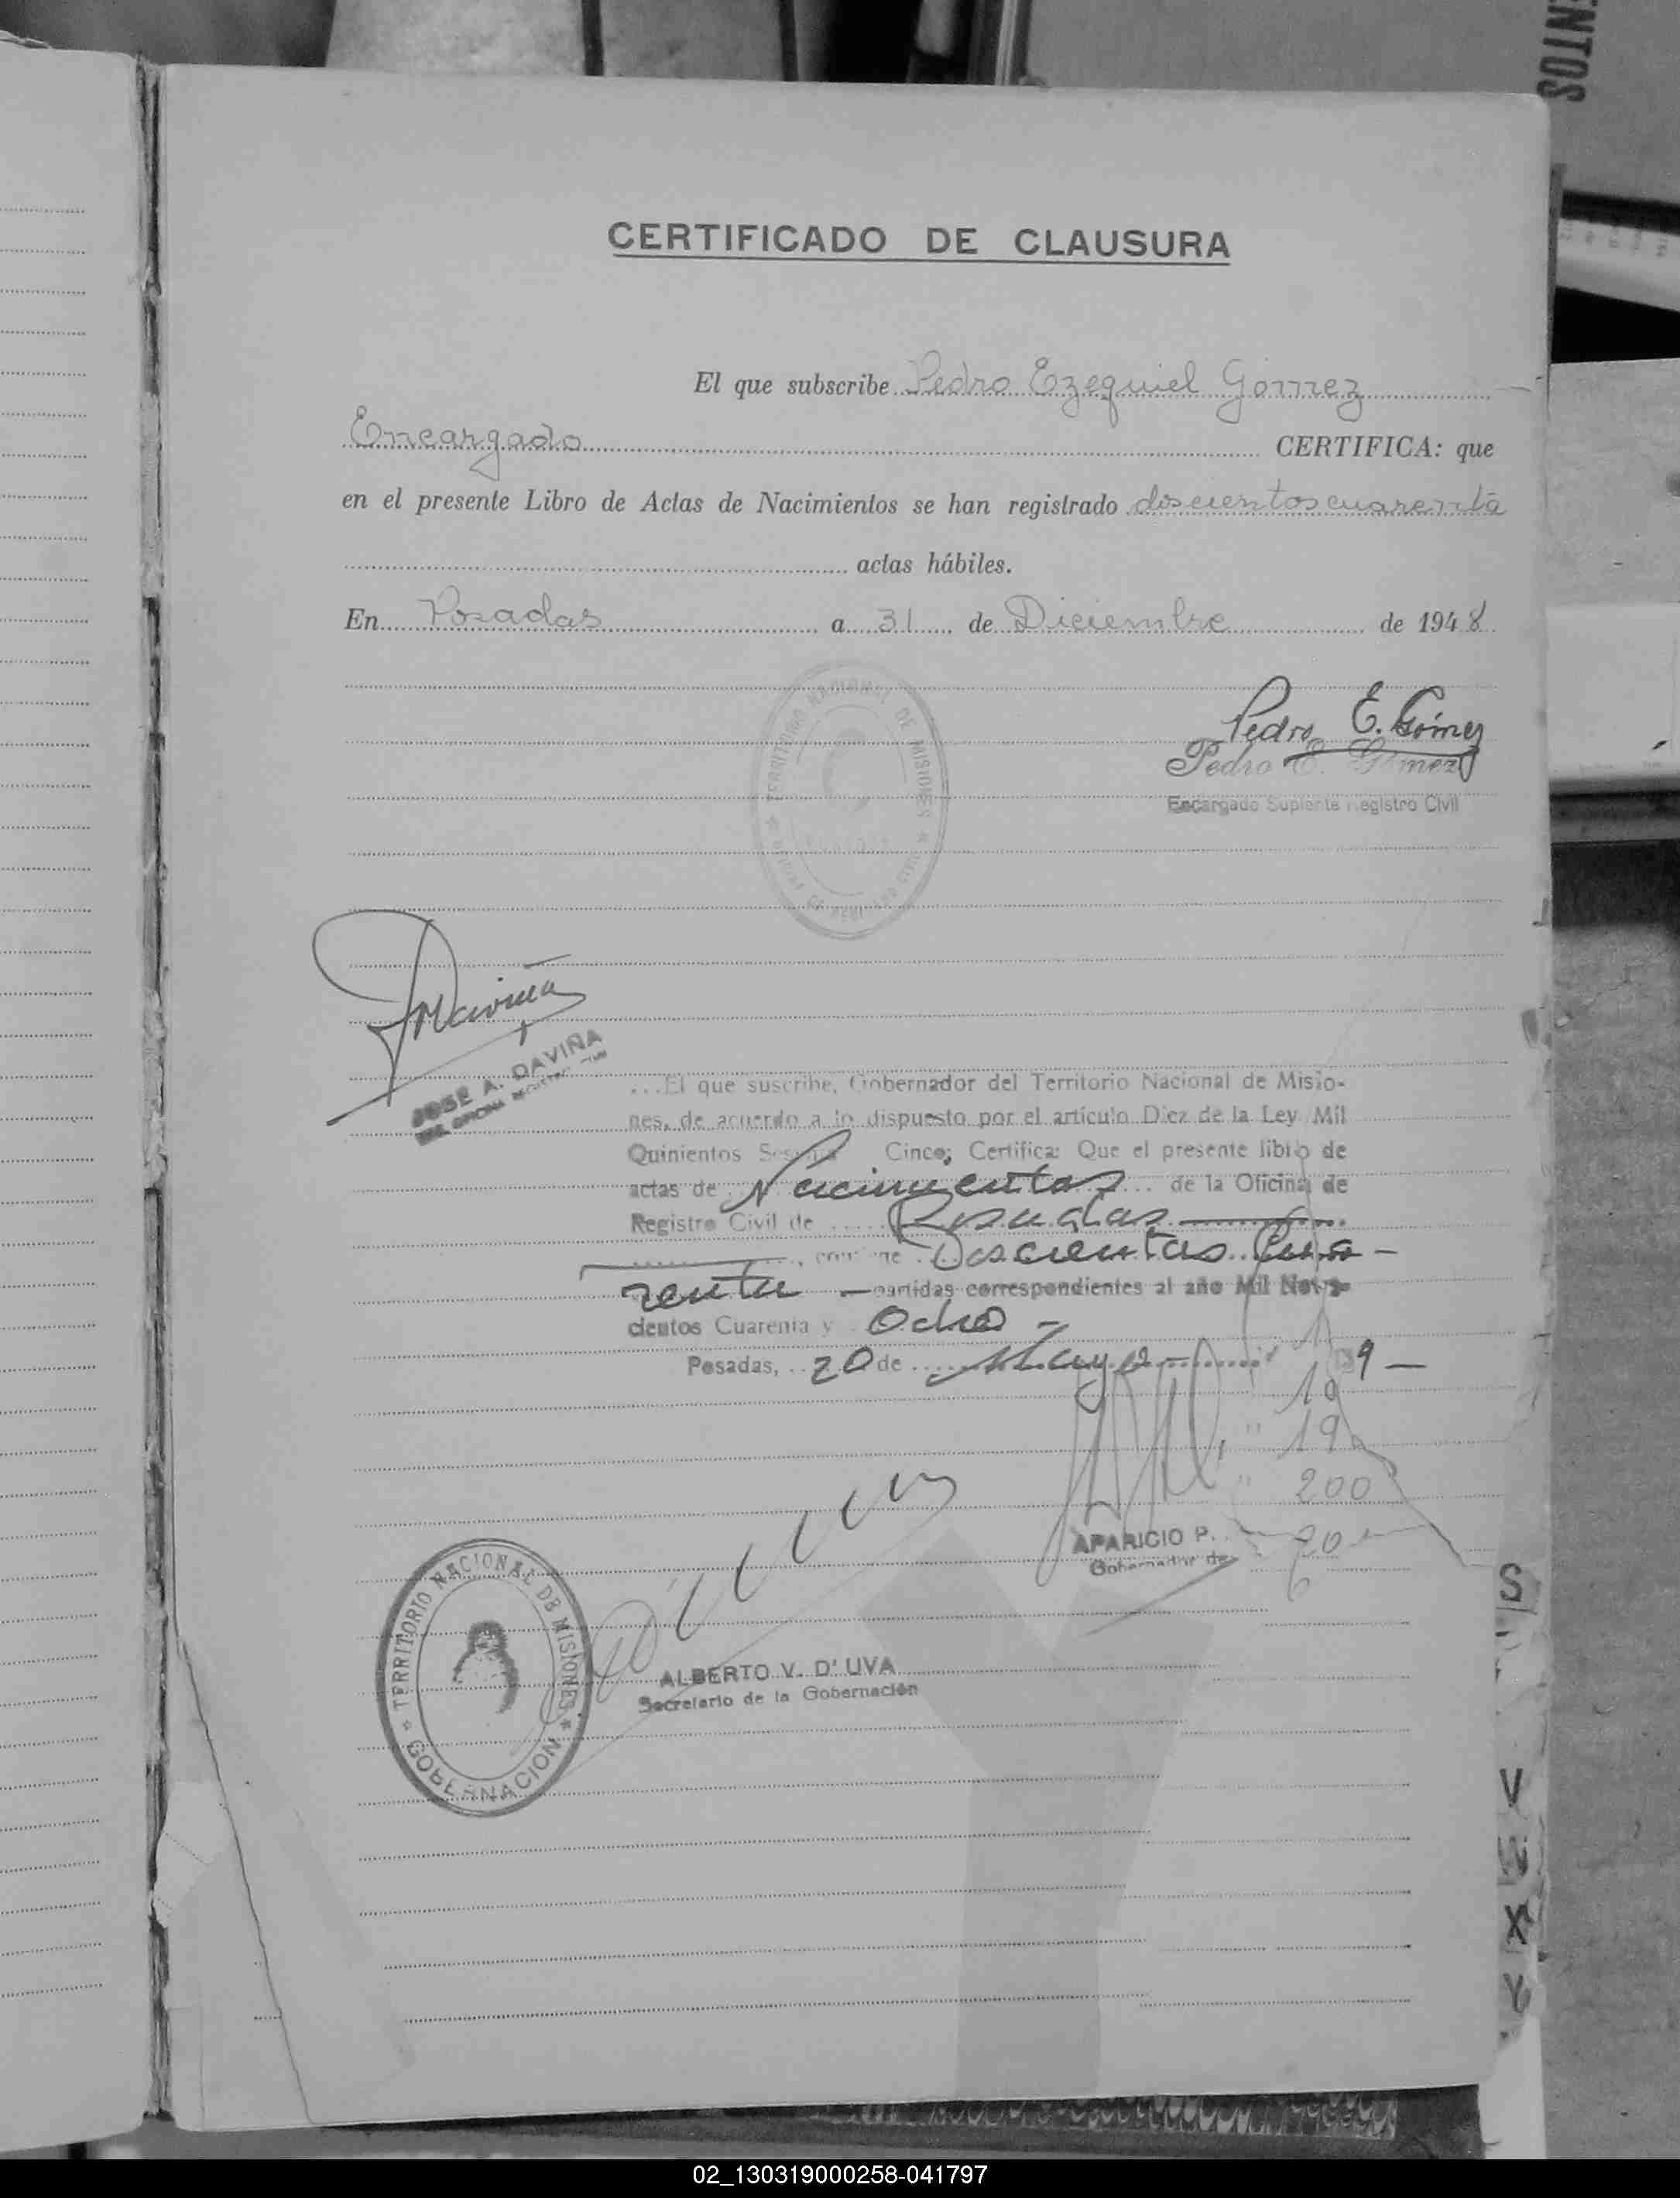 ENTOS
CERTIFICADO DE CLAUSURA
El que subscribe Pedro Ezequiel Gómez
Encargado CERTIFICA: que
en el presente Libro de Actas de Nacimientos se han registrado doscientos cuarenta
actas hábiles.
En Posadas a 31 de Diciembre de 1948
TERRITORIO NACIONAL DE MISIONES
Pedro E. Gómez
Pedro E. Gómez
Encargado Suplente Registro Civil
JOSE A. DAVIÑA
...El que suscribe, Gobernador del Territorio Nacional de Misio-
nes, de acuerdo a lo dispuesto por el artículo Diez de la Ley Mil
Quinientos Cinco; Certifica: Que el presente libro de
actas de Nacimientos de la Oficina de
Registro Civil de Posadas
Doscientas Cua-
renta partidas correspondientes al año Mil Nove-
cientos Cuarenta y Ocho -
Posadas, 20 de Mayo 9 -
19
200
20
APARICIO P.
Gobernador de
TERRITORIO NACIONAL DE MISIONES
GOBERNACION
ALBERTO V. D'UVA
Secretario de la Gobernación
S
V
X
Y
02_130319000258-041797